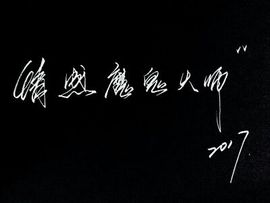 魔鬼大师"
2017